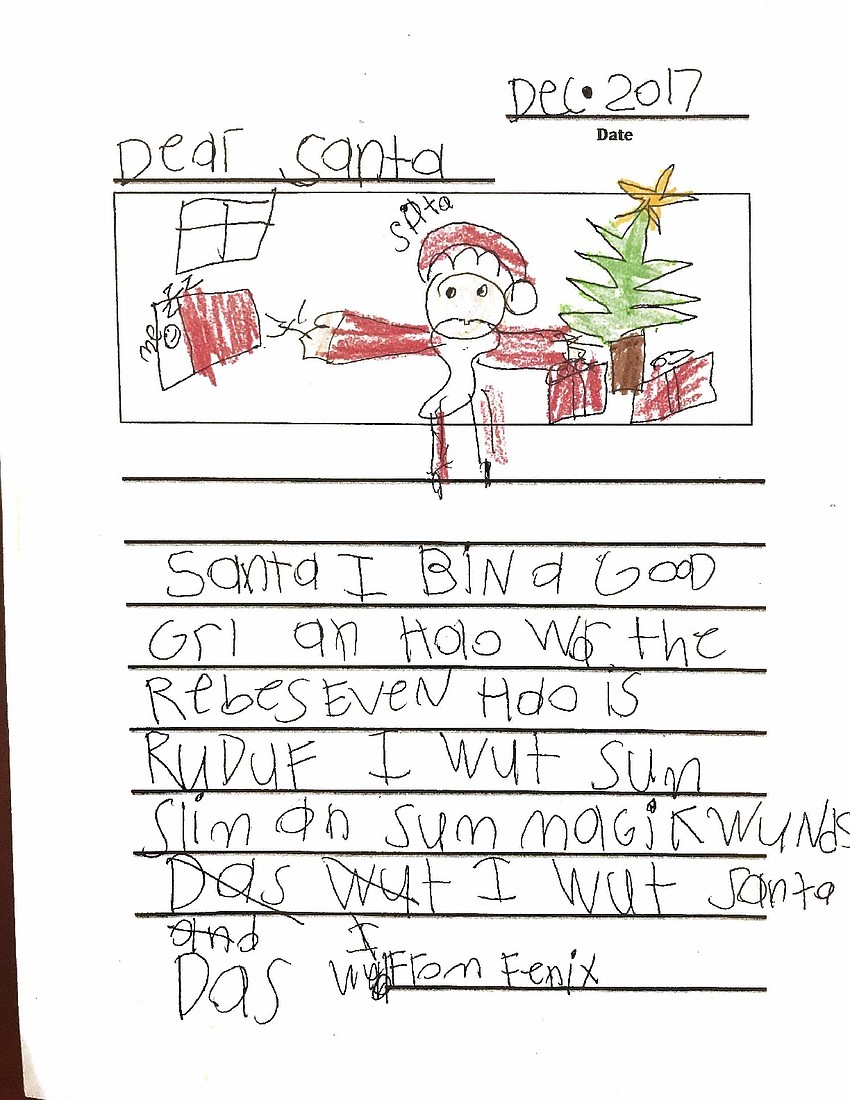 Dec. 2017
Date
Dear Santa
santa
me
Santa I BiN a GOOD
Grl an Hao Wor the
RebesEVEN Hao is
RUDUF I wut sum
Slim an sum magikwunds
Das Wut I wut santa
and I
Das wut From Fenix